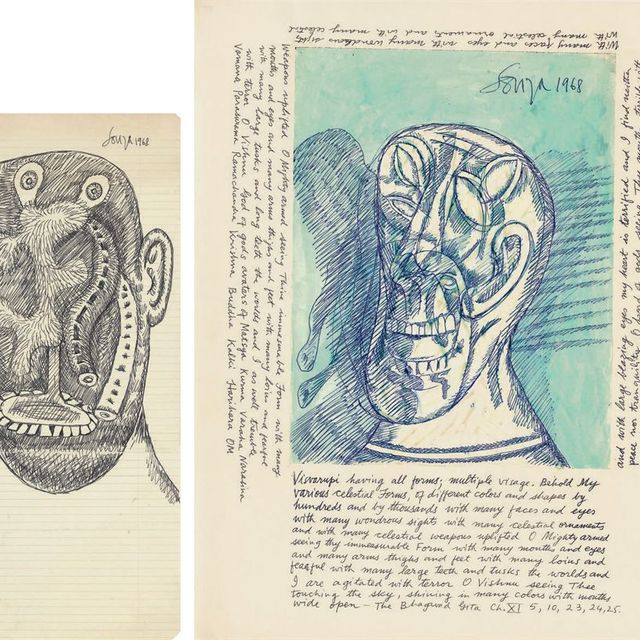 Souza 1968
Souza 1968
With many faces and eyes with many wondrous sights
With many celestial ornaments and with many celestial
weapons uplifted O Mighty armed seeing Thine immeasurable Form with many
mouths and eyes and many arms thighs and feet with many loins and fearful
with many large tusks and long teeth the worlds and I as well tremble
with terror O Vishnu God of gods avatars of Matsya Kurma Varaha Narasima
Vamana Parasurama Ramachandra Krishna Buddha Kalki Harihara OM
and with large blazing eyes my heart is terrified and I find neither
peace nor tranquility
Visvarupi having all forms; multiple visage. Behold My
various celestial Forms, of different colors and shapes by
hundreds and by thousands with many faces and eyes
with many wondrous sights with many celestial ornaments
and with many celestial weapons uplifted O Mighty armed
seeing thy immeasurable Form with many mouths and eyes
and many arms thighs and feet with many loins and
fearful with many large teeth and tusks the worlds and
I are agitated with terror O Vishnu seeing Thee
touching the sky, shining in many colors with mouths
wide open - The Bhagvad Gita Ch. XI 5, 10, 23, 24, 25.